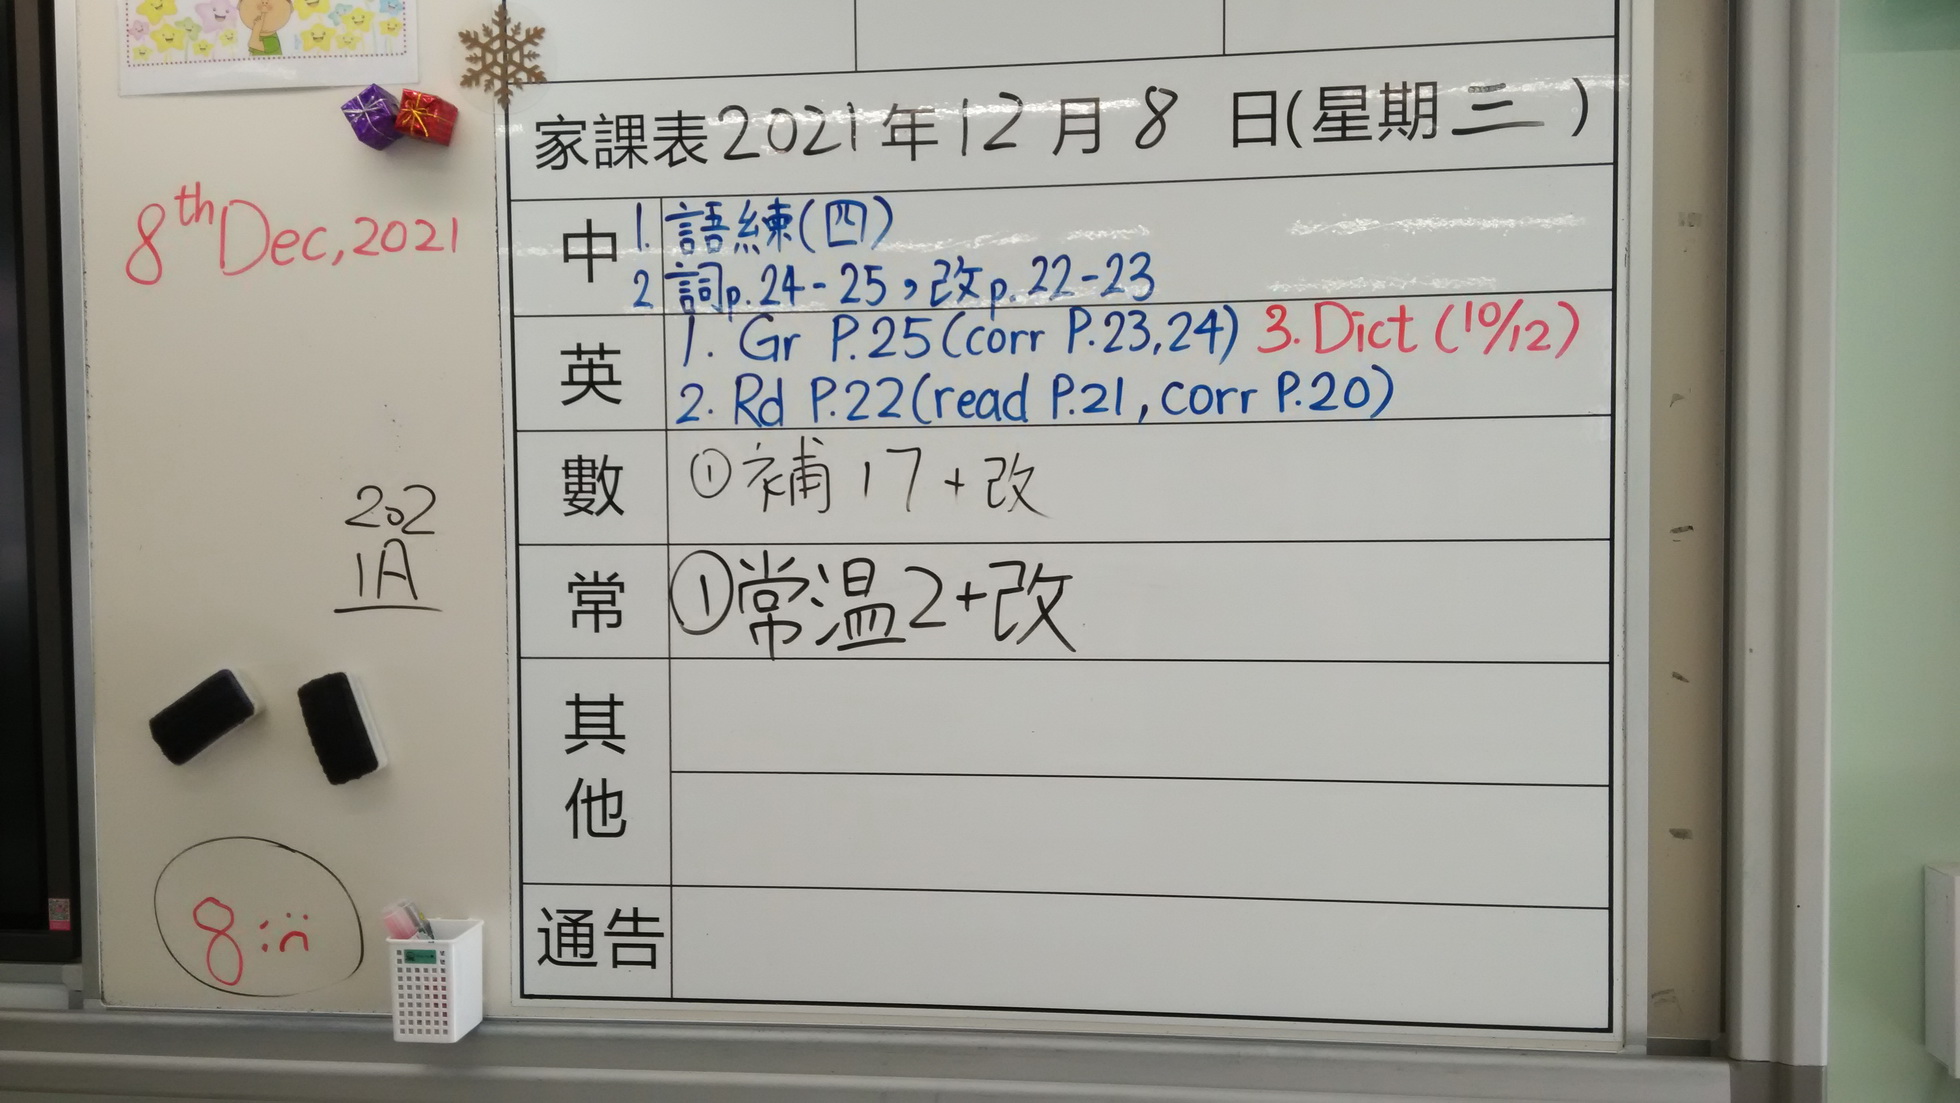 家課表2021年12月8日(星期三)
8th Dec, 2021
中 1. 語練(四)
2 詞p.24-25，改p.22-23
英 1. Gr P.25(corr P.23,24) 3. Dict (10/12)
2. Rd P.22(read P.21, corr P.20)
數 ①補17+改
202
1A
常 ①常溫2+改
其他
8:
通告